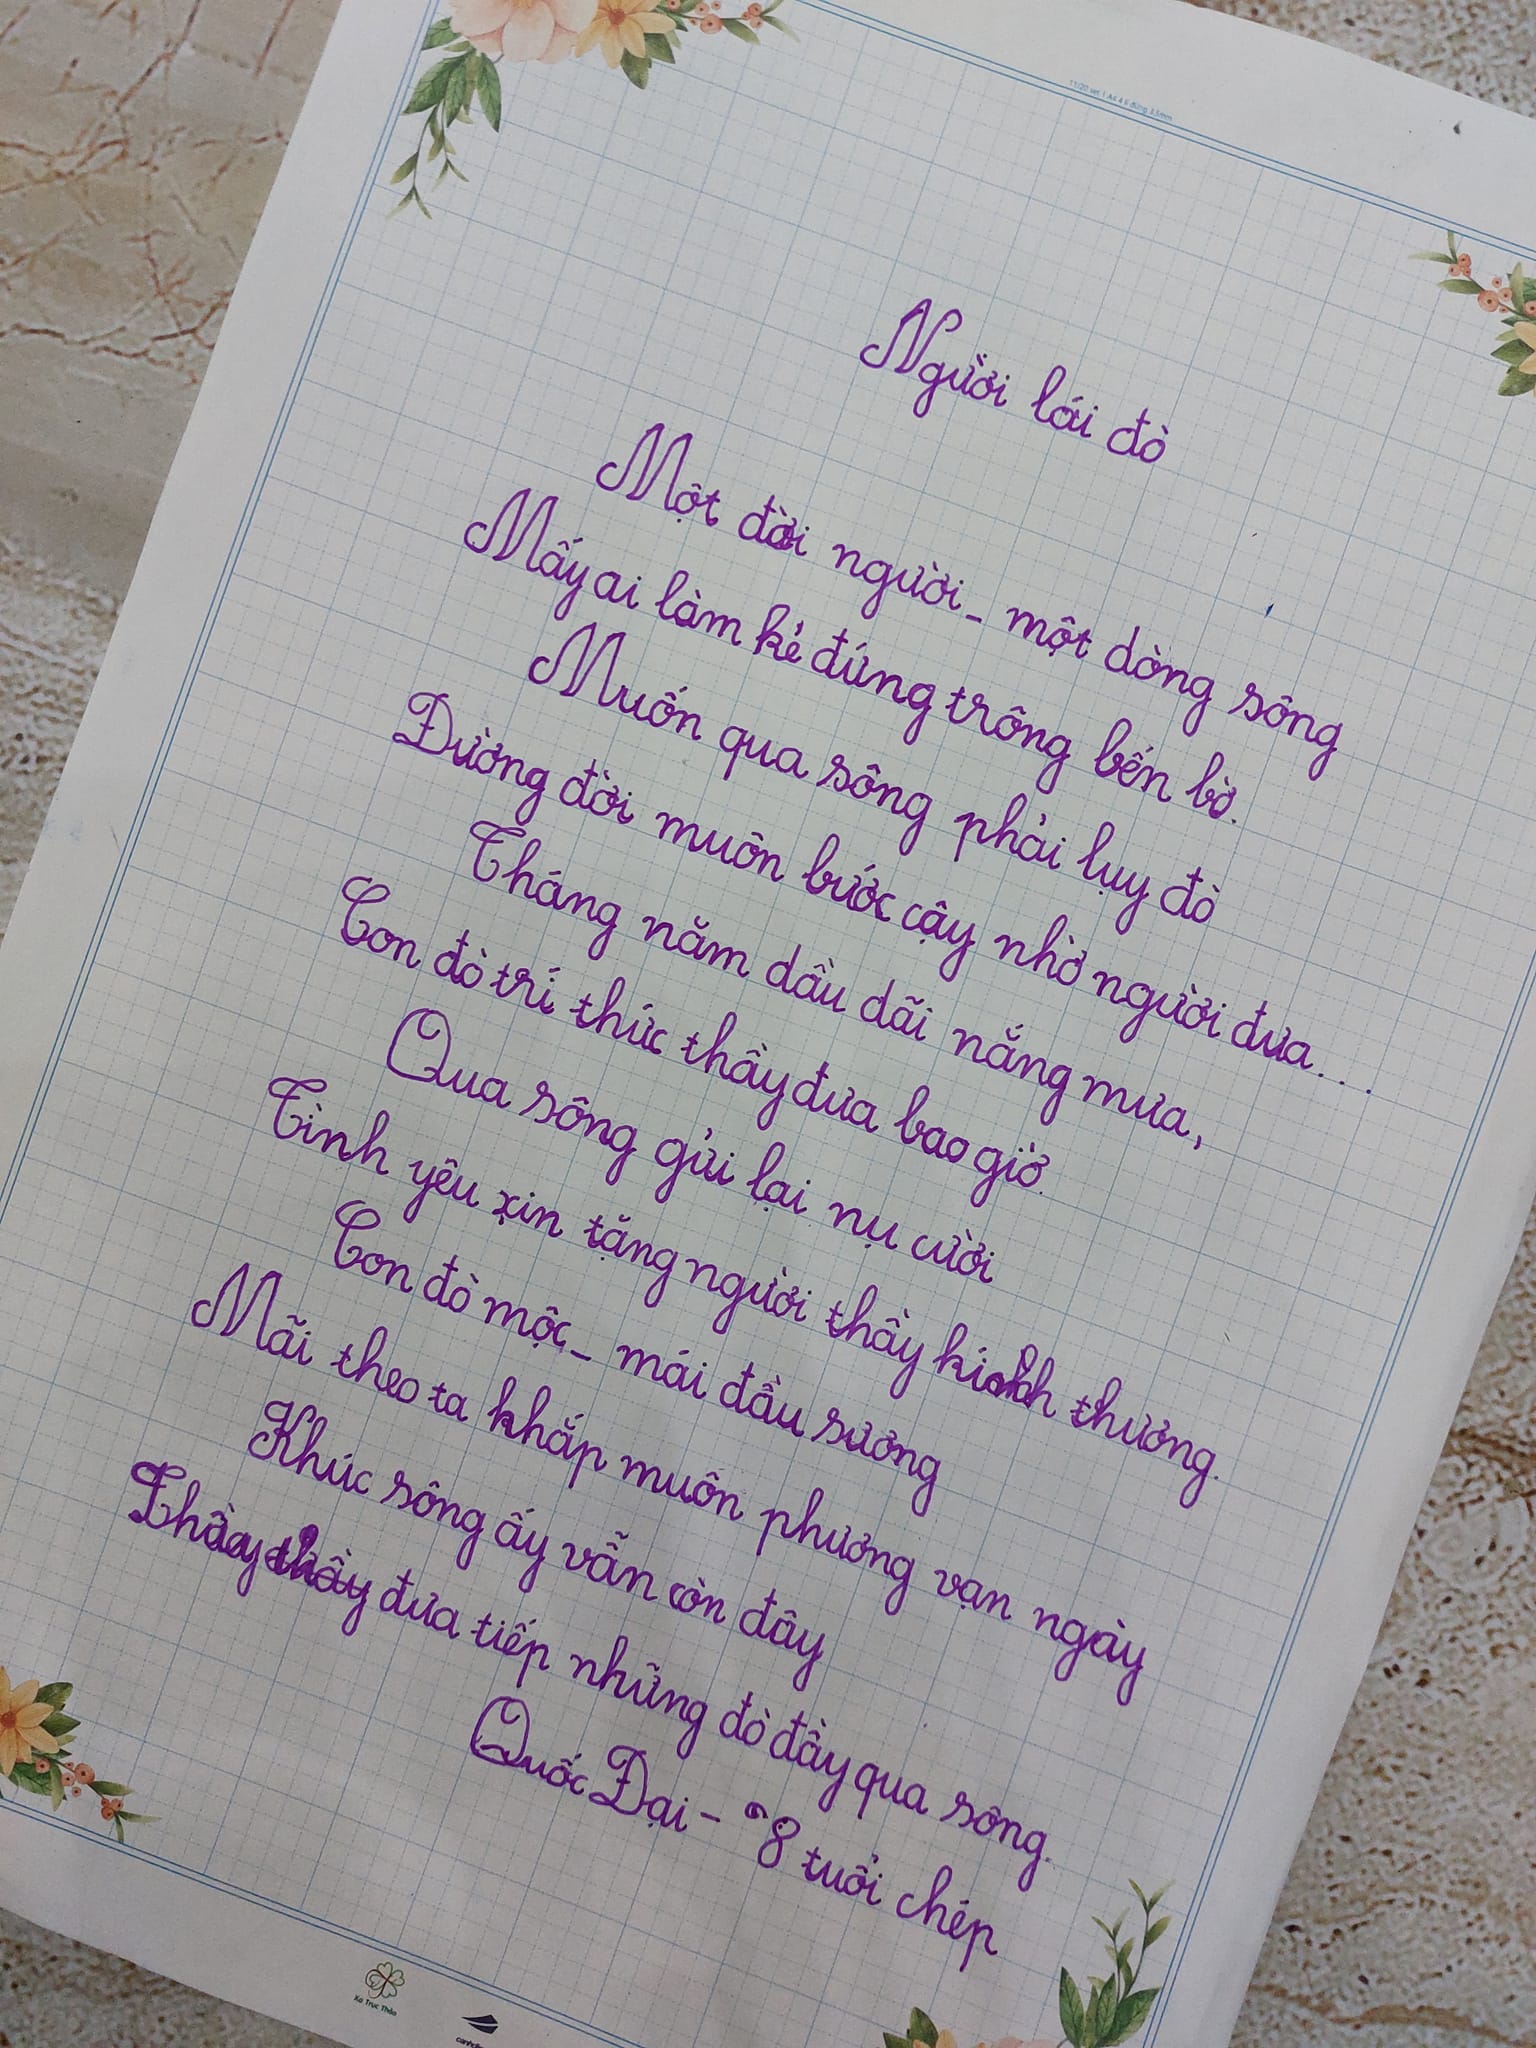 11/20 set 1 A4 4 li đứng 2,5mm
Người lái đò
Một đời người - một dòng sông
Mấy ai làm kẻ đứng trông bến bờ.
Muốn qua sông phải lụy đò
Đường đời muôn bước cậy nhờ người đưa...
Tháng năm dầu dãi nắng mưa,
Con đò trí thức thầy đưa bao giờ.
Qua sông gửi lại nụ cười
Tình yêu xin tặng người thầy kính thương.
Con đò mộc - mái đầu sương
Mãi theo ta khắp muôn phương vạn ngày
Khúc sông ấy vẫn còn đây
Thầy thầy đưa tiếp những đò đầy qua sông.
Quốc Đại - 8 tuổi chép
Xa Trục Thảo